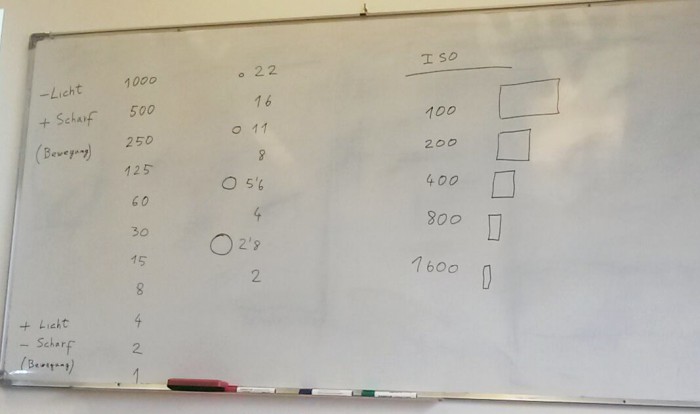 - Licht
+ Scharf
(Bewegung)
1000
500
250
125
60
30
15
8
4
2
1
+ Licht
- Scharf
(Bewegung)
22
16
11
8
5'6
4
2'8
2
ISO
100
200
400
800
1600